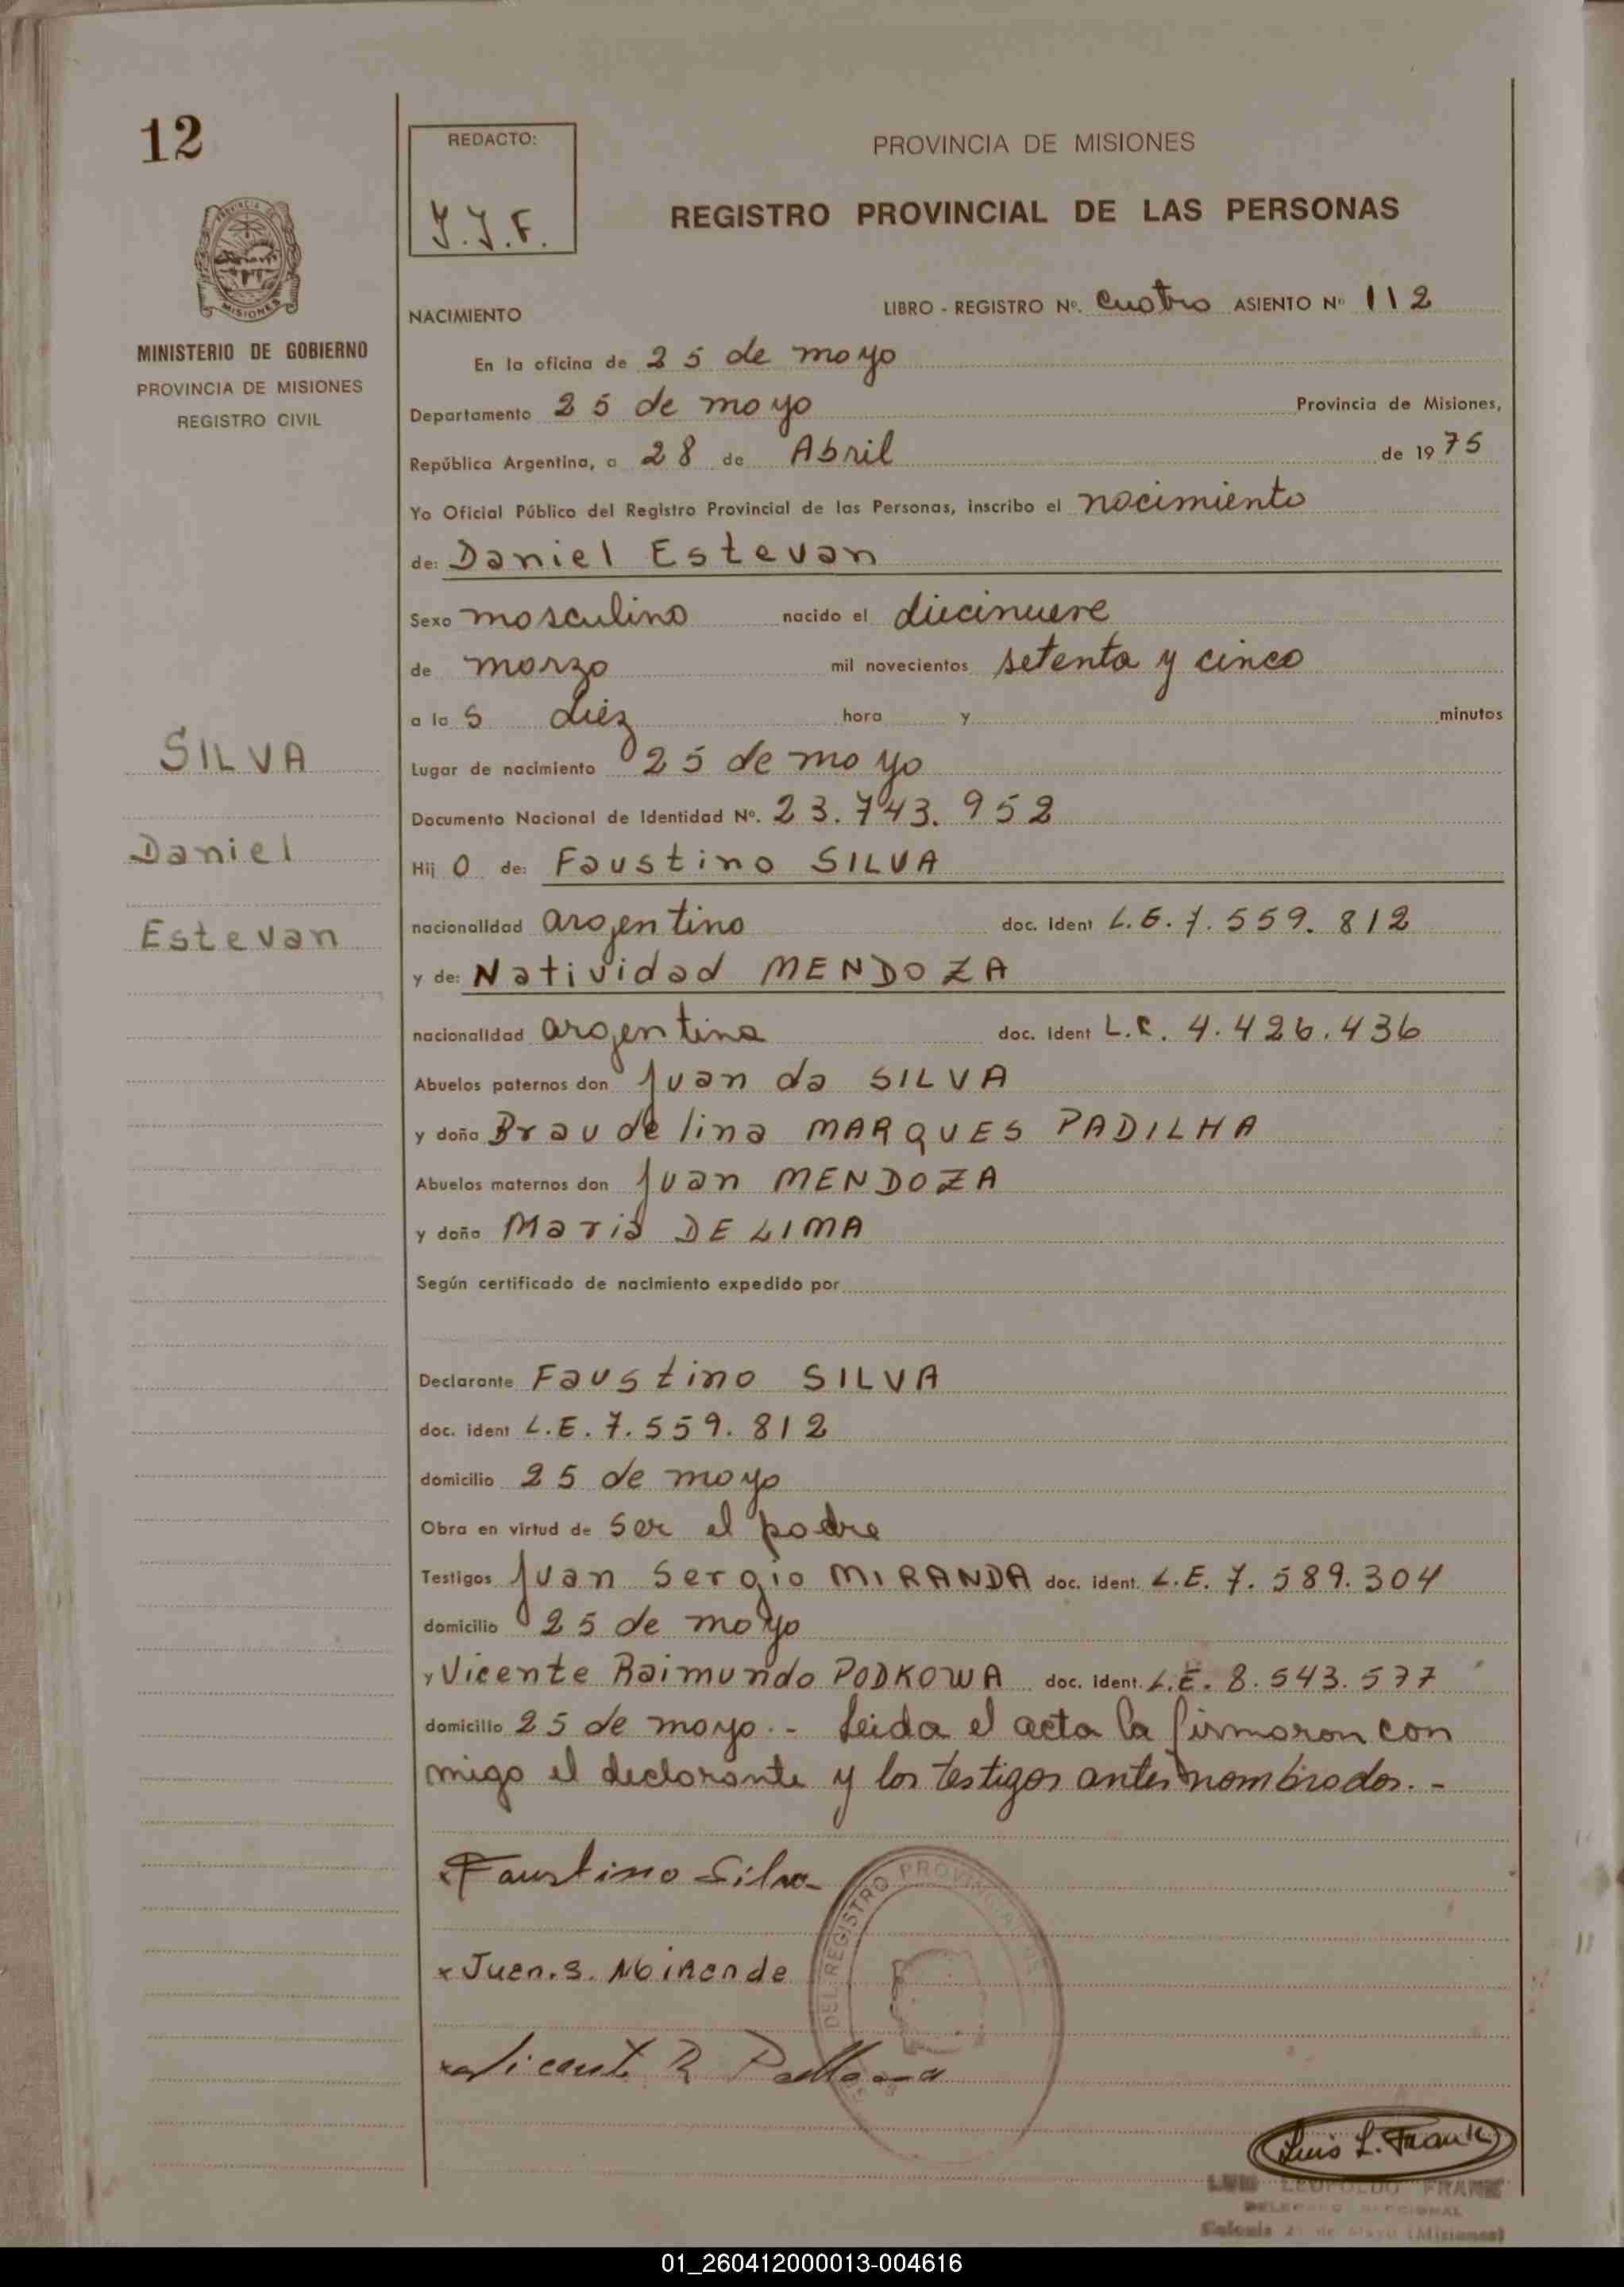 12
REDACTO:
J.J.F.
PROVINCIA DE MISIONES
REGISTRO PROVINCIAL DE LAS PERSONAS
PROVINCIA DE
MISIONES
MINISTERIO DE GOBIERNO
PROVINCIA DE MISIONES
REGISTRO CIVIL
SILVA
Daniel
Estevan
NACIMIENTO
LIBRO - REGISTRO Nº. Cuatro ASIENTO Nº 112
En la oficina de 25 de mayo
Departamento 25 de mayo Provincia de Misiones,
República Argentina, a 28 de Abril de 1975
Yo Oficial Público del Registro Provincial de las Personas, inscribo el nacimiento
de: Daniel Estevan
Sexo masculino nacido el diecinueve
de marzo mil novecientos setenta y cinco
a las diez hora y minutos
Lugar de nacimiento 25 de mayo
Documento Nacional de Identidad Nº. 23.743.952
Hijo de: Faustino SILVA
nacionalidad argentino doc. ident L.E. 7.559.812
y de: Natividad MENDOZA
nacionalidad argentina doc. ident L.C. 4.426.436
Abuelos paternos don Juan da SILVA
y doña Braudelina MARQUES PADILHA
Abuelos maternos don Juan MENDOZA
y doña Maria DE LIMA
Según certificado de nacimiento expedido por
Declarante Faustino SILVA
doc. ident L.E. 7.559.812
domicilio 25 de mayo
Obra en virtud de ser el padre
Testigos Juan Sergio MIRANDA doc. ident. L.E. 7.589.304
domicilio 25 de mayo
y Vicente Raimundo PODKOWA doc. ident. L.E. 8.543.577
domicilio 25 de mayo.- Leida el acta la firmaron con
migo el declarante y los testigos antes nombrados.-
Faustino Silva
x Juan.S. Miranda
x Vicente R
DEL REGISTRO PROVINCIAL
Luis L. Frank
LUIS LEOPOLDO FRANK
DELEGADO SECCIONAL
Colonia 25 de Mayo (Misiones)
01_260412000013-004616